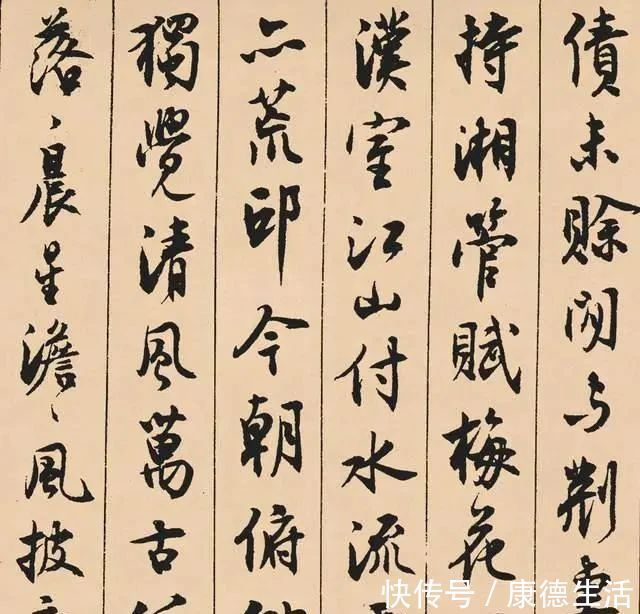 債未賒閒与荆
持湘管賦梅花
漢室江山付水流
亦荒邱今朝俯
獨覺清風萬古
落〻晨星澹〻風披
快传号 / 康德生活